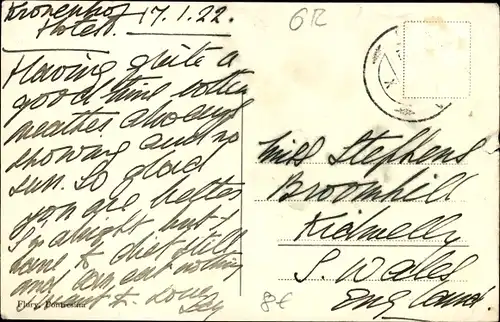 Kronenhof
Hotel. 17.1.22.
6R
Having quite a
good time rotten
weather always
snowing and no
sun. So glad
you are better
I'm alright but I
have to diet still
and can eat nothing
to
Flury, Pontresina
Miss Stephens
Broomhill
Kidwelly
S. Wales
England
8e